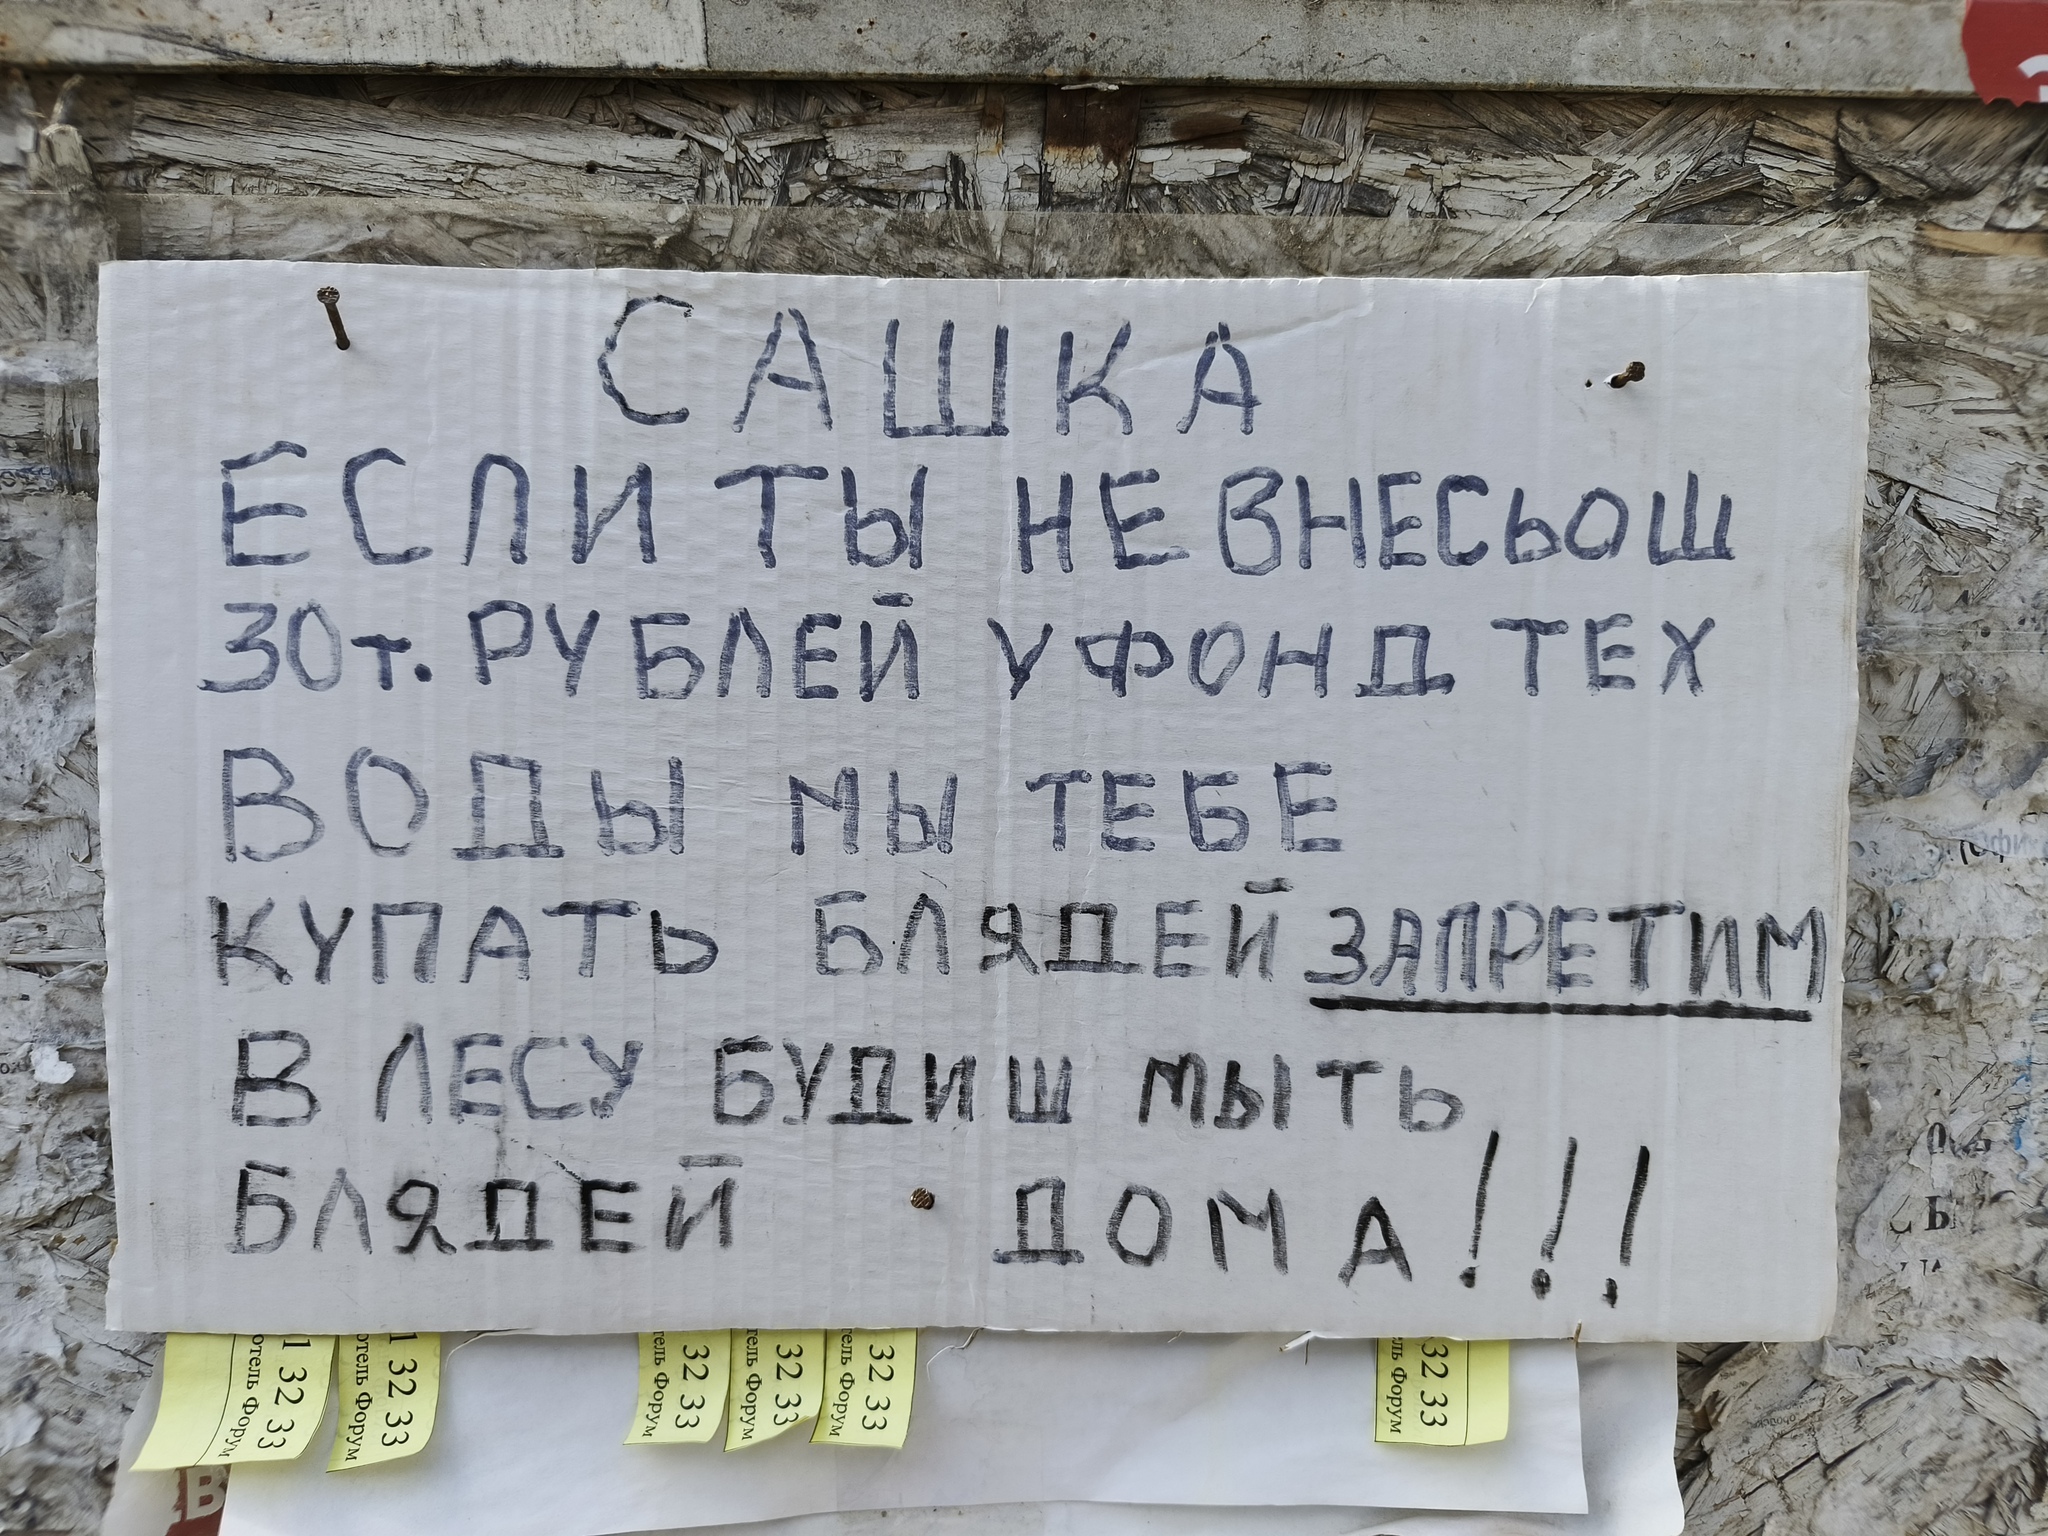 САШКА
ЕСЛИ ТЫ НЕ ВНЕСЬОШ
30 т. РУБЛЕЙ У ФОНД ТЕХ
ВОДЫ МЫ ТЕБЕ
КУПАТЬ БЛЯДЕЙ ЗАПРЕТИМ
В ЛЕСУ БУДИШ МЫТЬ
БЛЯДЕЙ ДОМА!!!
1 32 33
отель Форум
1 32 33
отель Форум
32 33
тель Форум
32 33
тель Форум
32 33
тель Форум
32 33
ль Форум